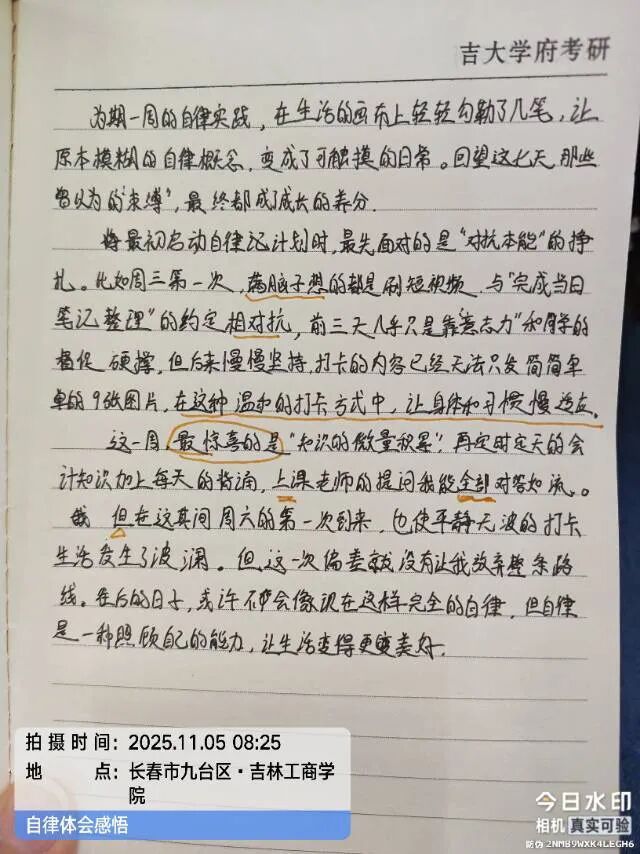 吉大学府考研
为期一周的自律实践，在生活的画布上轻轻勾勒了几笔，让
原本模糊的自律概念，变成了可触摸的日常。回望这七天，那些
曾以为的"束缚"，最终都成了成长的养分.
最初启动自律记计划时，最先面对的是"对抗本能"的挣
扎。比如周三第一次，满脑子想的都是刷短视频，与"完成当日
笔记整理"的约定相对抗，前三天几乎只是靠"意志力"和同学的
督促硬撑，但后来慢慢坚持，打卡的内容已经无法只发简简单
单的9张图片，在这种温和的打卡方式中，让身体和习惯慢适应。
这一周，最惊喜的是"知识的微量积累"，再定时定天的会
计知识加上每天的背诵，上课老师的提问我能全部对答如流。
但在这其间周六的第一次到来，也使平静无波的打卡
生活发生了波澜。但，这一次偏差就没有让我放弃整条路
线。在后的日子，或许不会像现在这样完全的自律，但自律
是一种照顾自己的能力，让生活变得更美好.
拍摄时间：2025.11.05 08:25
地点：长春市九台区·吉林工商学
院
自律体会感悟
今日水印
相机 真实可验
防伪 2NMB9WXK4LEGH6